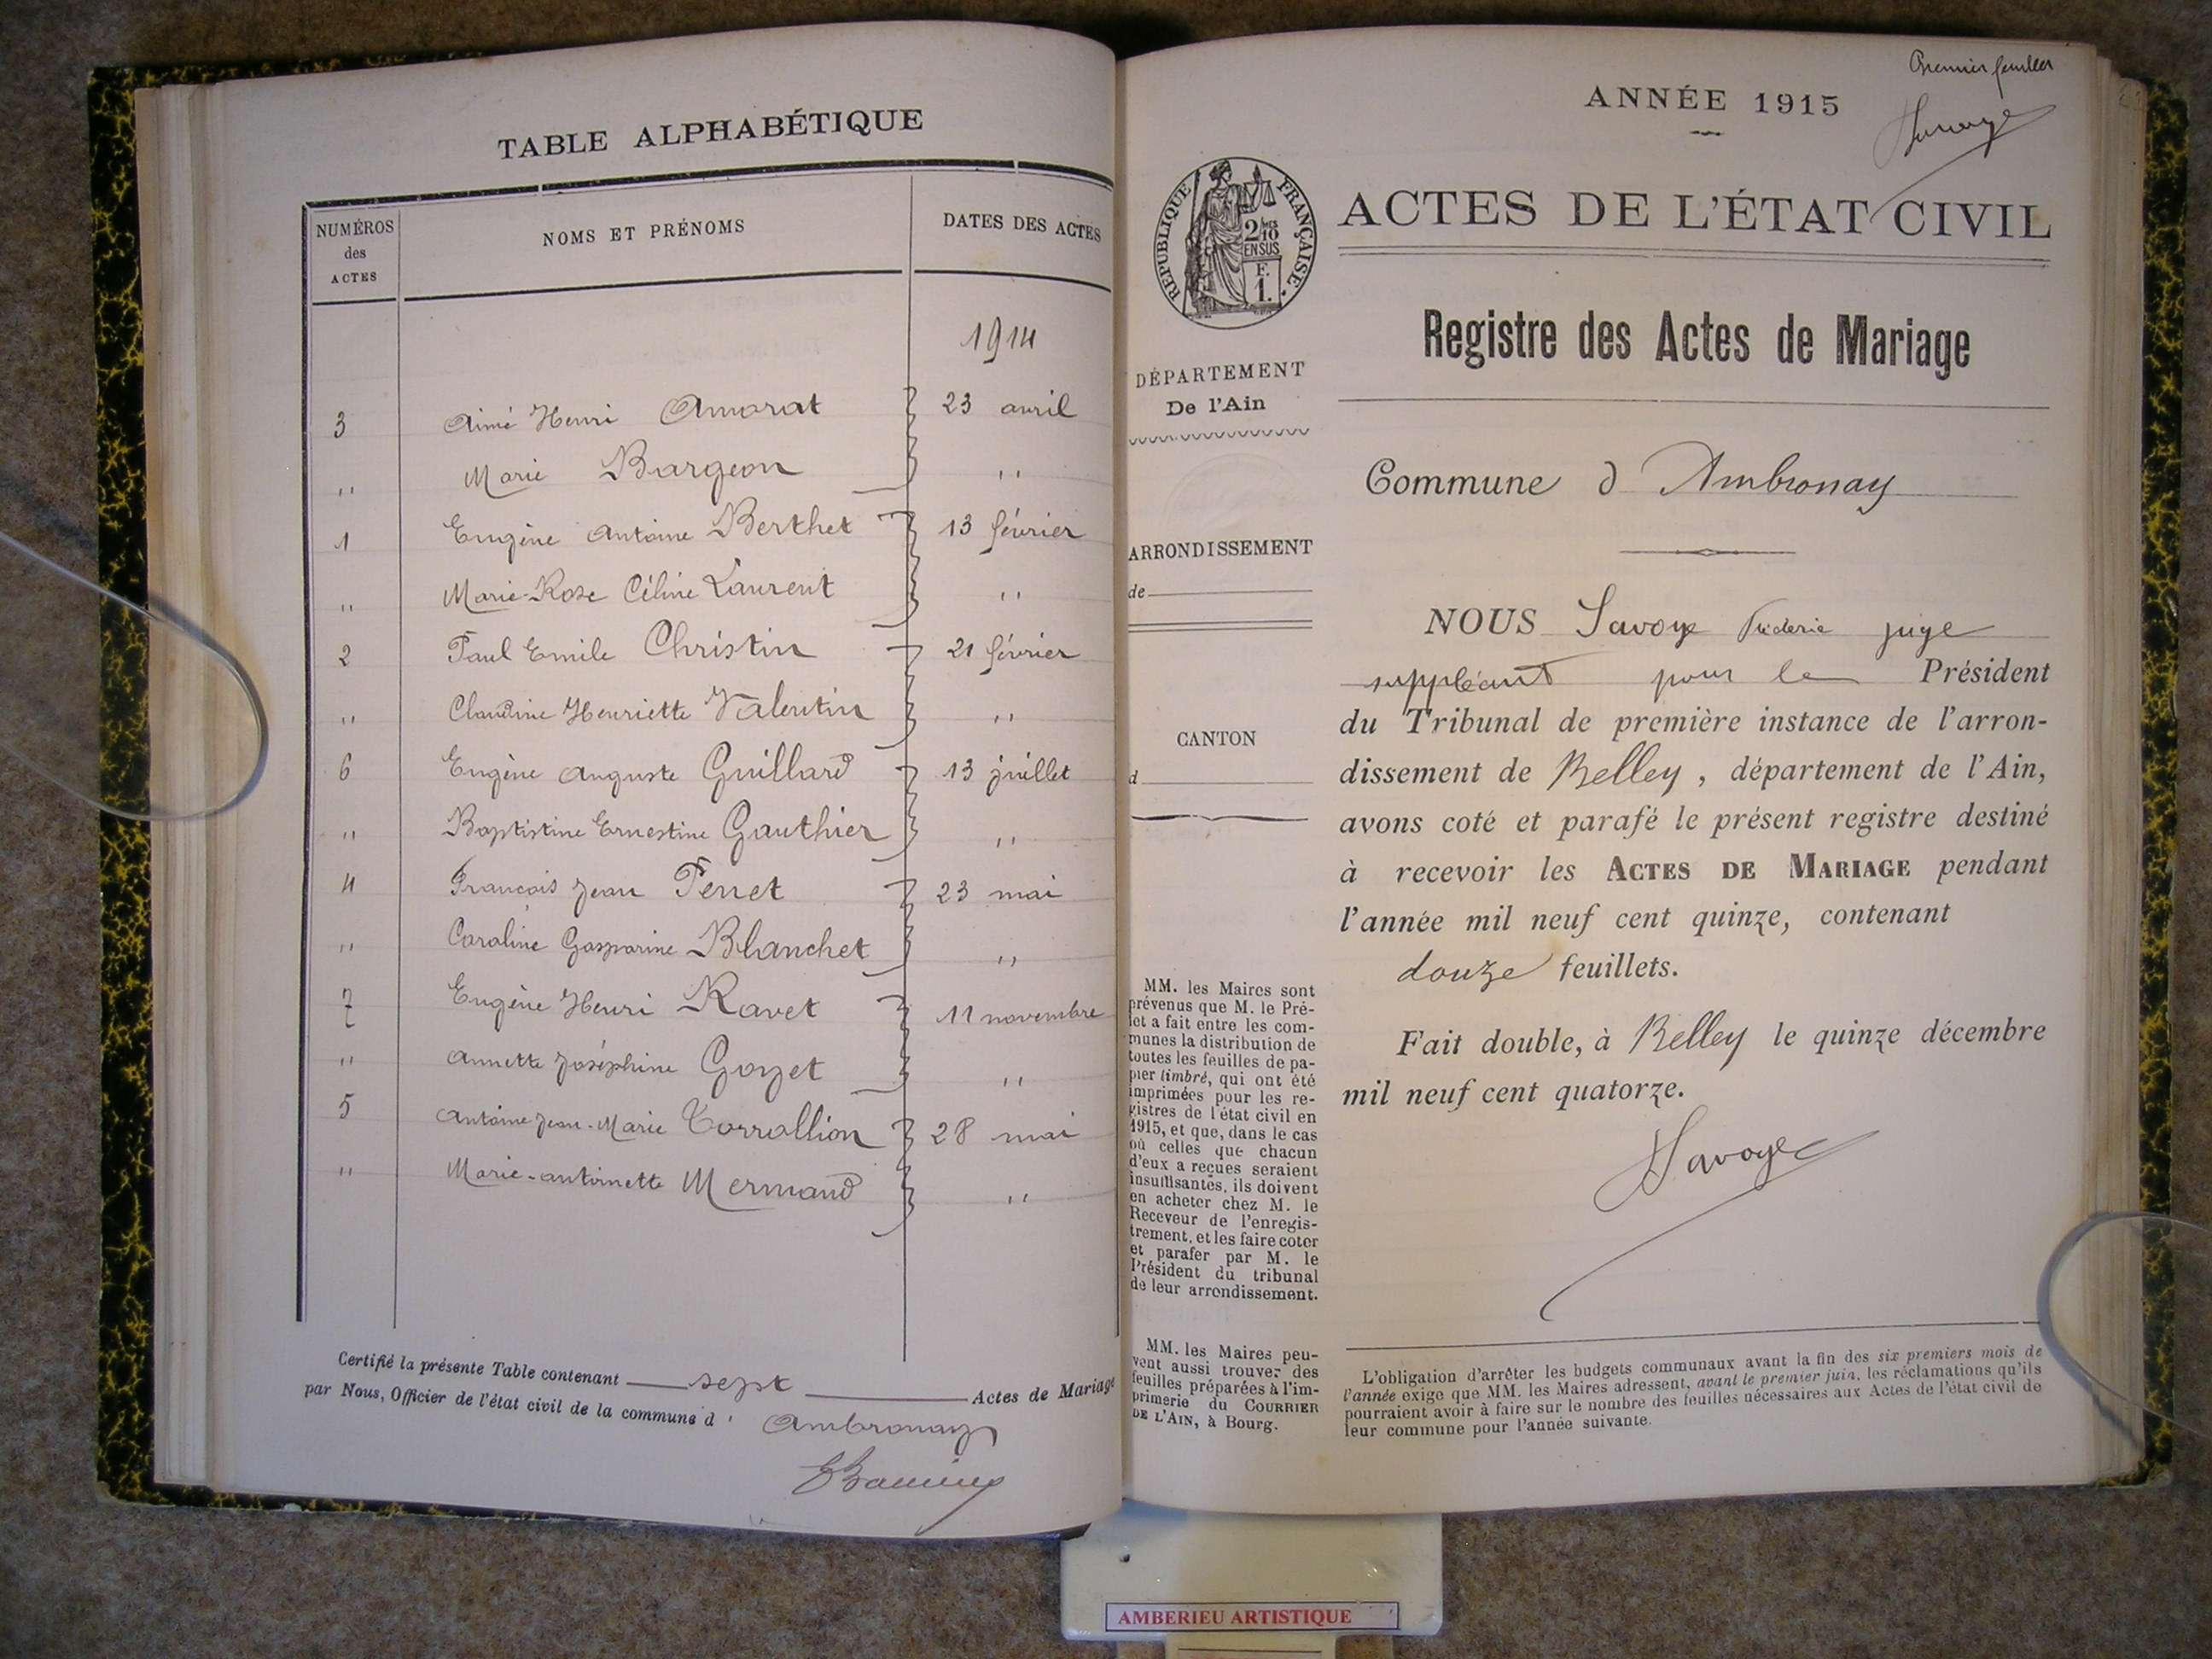 TABLE ALPHABÉTIQUE
NUMÉROS
des
ACTES
NOMS ET PRÉNOMS
DATES DES ACTES
1914
3 Aimé Henri Amorat 23 avril
" Marie Bargeon "
1 Eugène Antoine Berthet 13 février
" Marie-Rose Céline Laurent "
2 Paul Emile Christin 21 février
" Claudine Henriette Valentin "
6 Eugène Auguste Guillard 13 juillet
" Baptistine Ernestine Gauthier "
4 François Jean Perret 23 mai
" Caroline Gasparine Blanchet "
7 Eugène Henri Ravet 11 novembre
" Annette Joséphine Goyet "
5 Antoine Jean-Marie Torrollion 28 mai
" Marie-Antoinette Mermand "
Certifié la présente Table contenant sept Actes de Mariage
par Nous, Officier de l'état civil de la commune d' Ambronay
Premier feuillet
Savoye
ANNÉE 1915
RÉPUBLIQUE FRANÇAISE
2/10
EN SUS
F.
1.
ACTES DE L'ÉTAT CIVIL
Registre des Actes de Mariage
DÉPARTEMENT
De l'Ain
ARRONDISSEMENT
de
CANTON
d
Commune d'Ambronay
NOUS Savoye Frédéric juge
suppléant pour le Président
du Tribunal de première instance de l'arron-
dissement de Belley, département de l'Ain,
avons coté et parafé le présent registre destiné
à recevoir les ACTES DE MARIAGE pendant
l'année mil neuf cent quinze, contenant
douze feuillets.
Fait double, à Belley le quinze décembre
mil neuf cent quatorze.
Savoye
MM. les Maires sont
prévenus que M. le Pré-
fet a fait entre les com-
munes la distribution de
toutes les feuilles de pa-
pier timbré, qui ont été
imprimées pour les re-
gistres de l'état civil en
1915, et que, dans le cas
où celles que chacun
d'eux a reçues seraient
insuffisantes, ils doivent
en acheter chez M. le
Receveur de l'enregis-
trement, et les faire coter
et parafer par M. le
Président du tribunal
de leur arrondissement.
MM. les Maires peu-
vent aussi trouver des
feuilles préparées à l'im-
primerie du COURRIER
DE L'AIN, à Bourg.
L'obligation d'arrêter les budgets communaux avant la fin des six premiers mois de
l'année exige que MM. les Maires adressent, avant le premier juin, les réclamations qu'ils
pourraient avoir à faire sur le nombre des feuilles nécessaires aux Actes de l'état civil de
leur commune pour l'année suivante.
AMBERIEU ARTISTIQUE